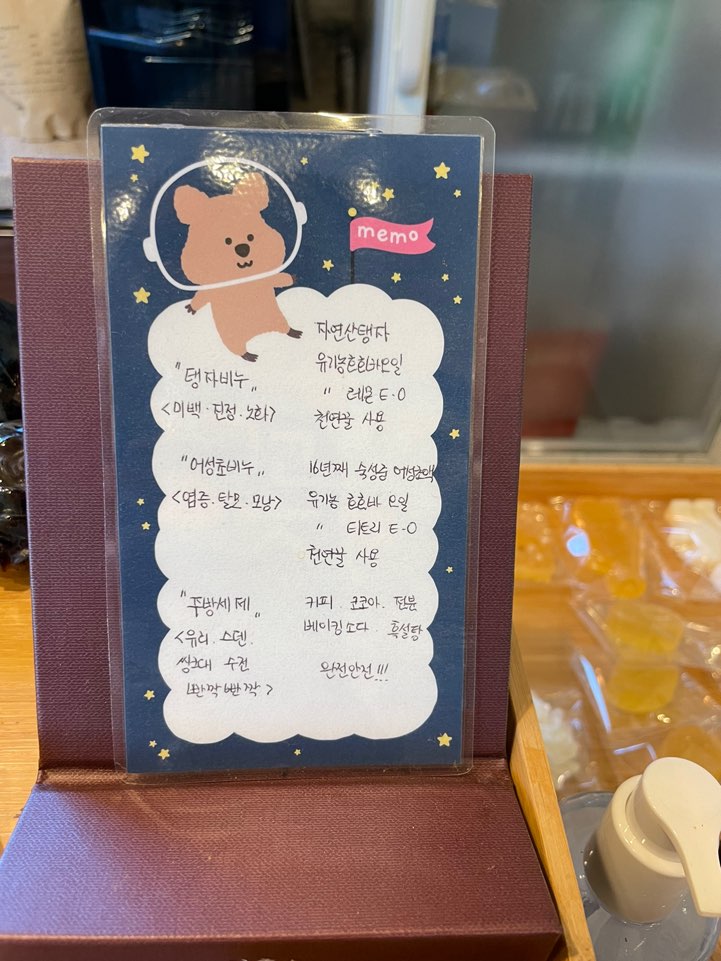 memo
"탱자비누„
<미백·진정·노화>
자연산탱자
유기농호호바오일
" 레몬 E·O
천연꿀 사용
"어성초비누„
<염증.탈모.모낭>
16년째 숙성중 어성초액
유기농 호호바 오일
" 티트리 E·O
천연꿀 사용
"주방세제„
<유리. 스텐.
씽크대 수전
반짝빤짝>
커피. 코코아. 전분
베이킹소다. 흑설탕
완전안전!!!